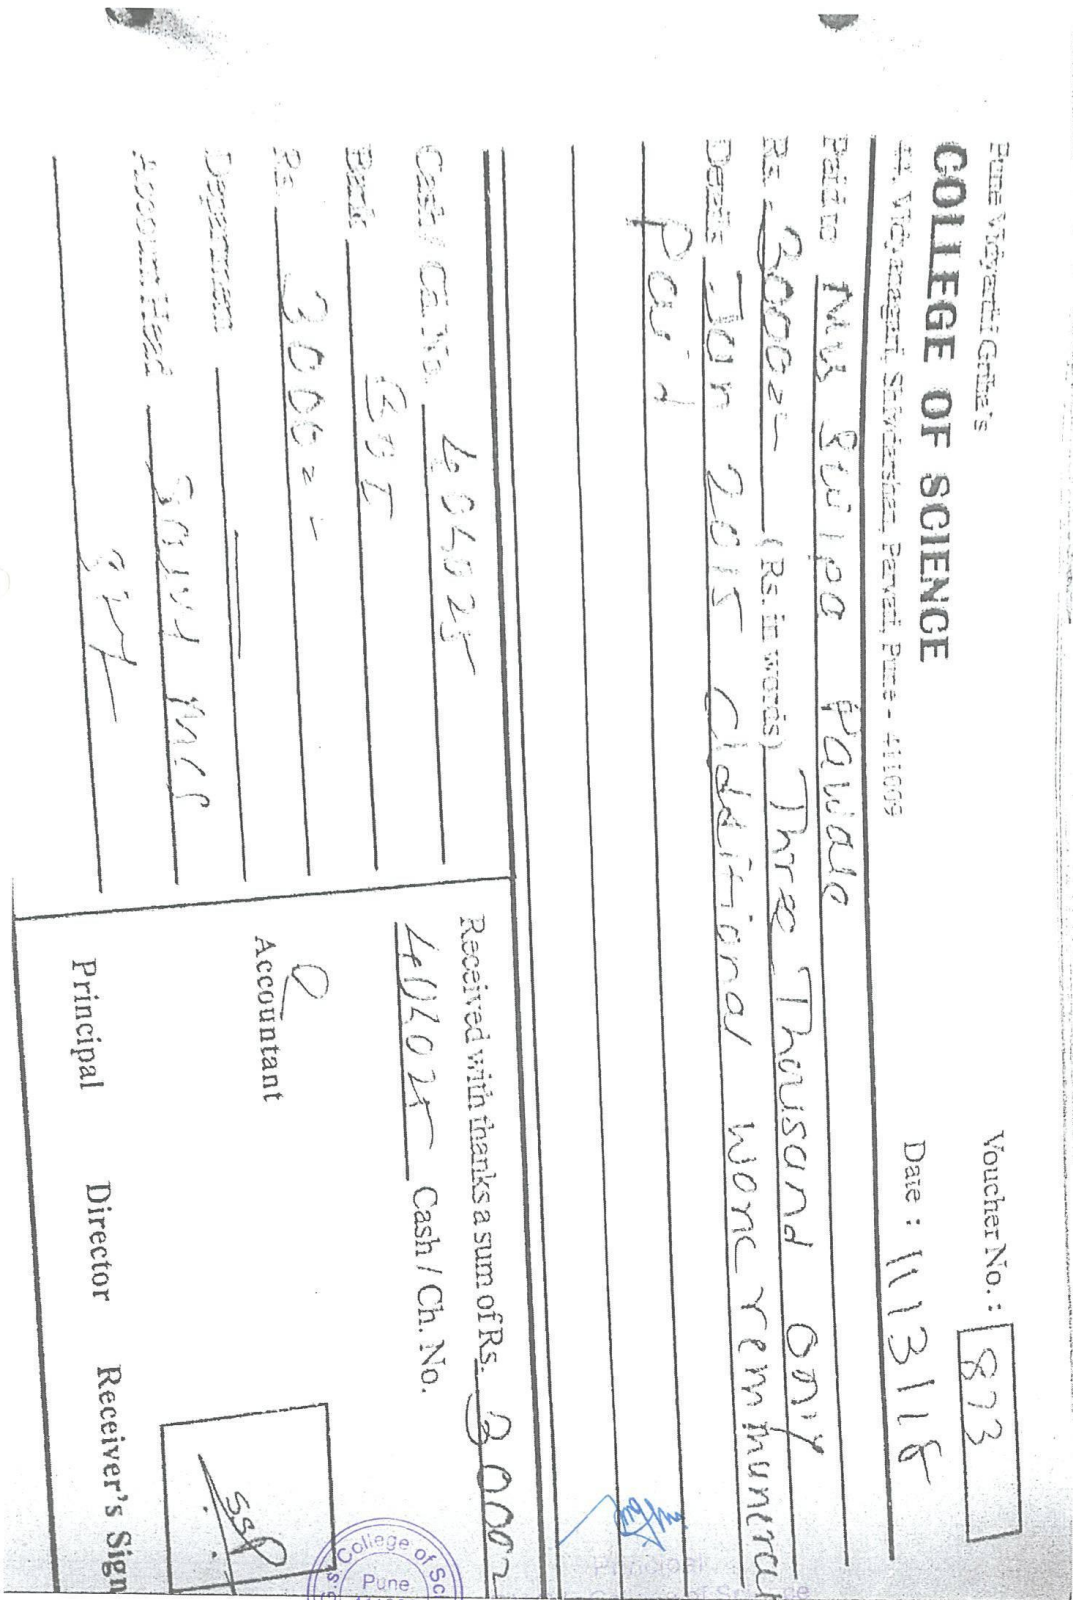 Pune Vidyarthi Griha's
COLLEGE OF SCIENCE
44, Vidyanagari, Shivdarshan, Parvati, Pune - 411009
Voucher No. : 873
Date : 11/3/15
Paid to Mrs Pawale
Rs. 3000=- (Rs. in words) Three Thousand only
Details Jan 2015 additional work remmunerat
Paid
Cash / Ch. No. 404025
Bank BOI
Rs. 3000=-
Department
Account Head
Received with thanks a sum of Rs. 3000=
404025 Cash / Ch. No.
Accountant
Principal Director Receiver's Sign
SSP
College of Sc
Pune
Principal